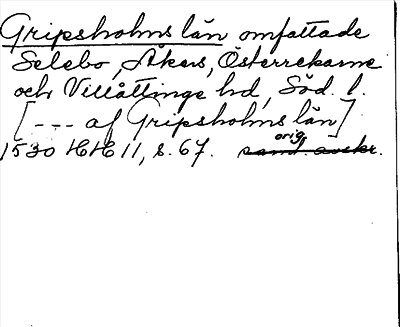 Gripsholms län omfattade
Selebo, Åkers, Österrekarne
och Villåttinge hd, Söd. l.
[--- af Gripsholms län]
orig.
1530 HH 11, s. 67. samt. avskr.